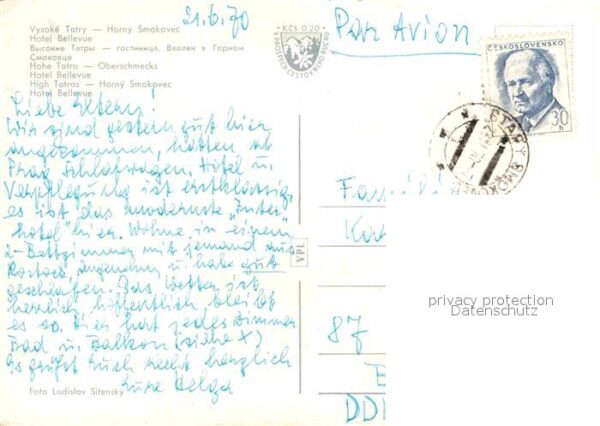 21.6.70
Vysoké Tatry — Horný Smokovec
Hotel Bellevue
Высокие Татры — гостиница, Веллеи в Горном
Смоковце
Hohe Tatra — Oberschmecks
Hotel Bellevue
High Tatras — Horný Smokovec
Hotel Bellevue
Kčs 0.20
Par Avion
ČESKOSLOVENSKO
30 h
STARÝ SMOKOVEC
Liebe Eltern!
Wir sind gestern gut hier
angekommen, hatten ab
Prag Schlafwagen. Hotel u.
Verpflegung ist erstklassig,
es ist das modernste "Inter-
hotel" hier. Wohne in einem
2-Bettzimmer mit jemand aus
Rostock, angenehm u. habe gut
geschlafen. Das Wetter ist
herrlich, hoffentlich bleibt
es so. Hier hat jedes Zimmer
Bad u. Balkon (siehe X)
Es grüßt Euch recht herzlich
Eure Helga
VPL
Foto Ladislav Sitenský
Famili
87
DD
privacy protection
Datenschutz